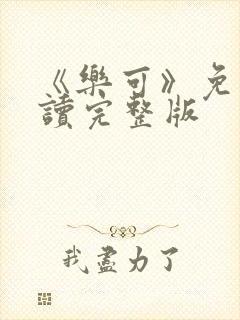 《樂可》免
讀完整版
我盡力了